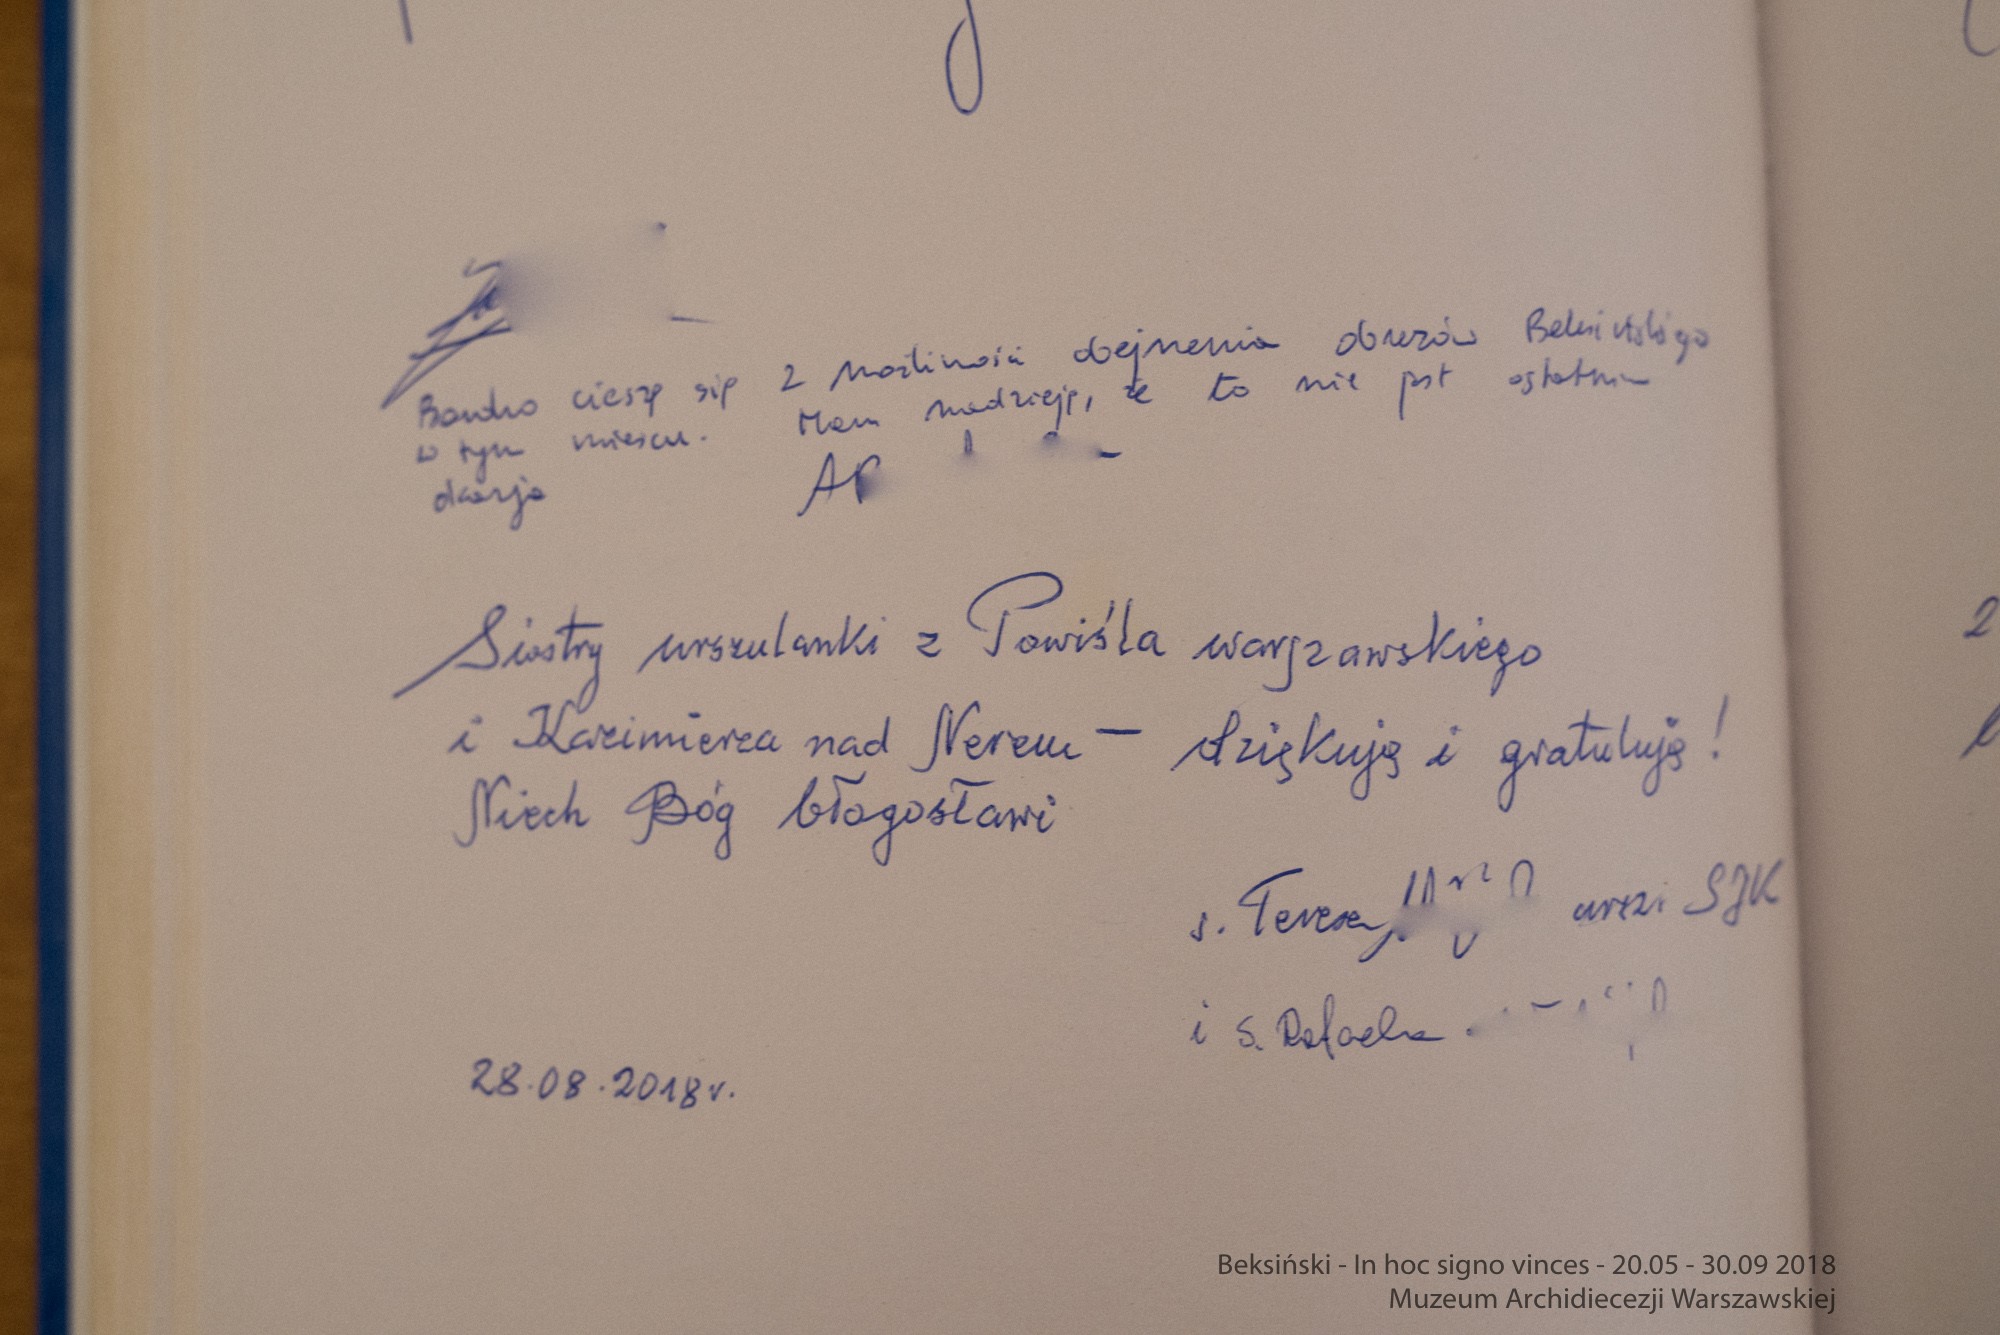 Bardzo cieszę się z możliwości obejrzenia obrazów Beksińskiego
w tym miejscu. Mam nadzieję, że to nie jest ostatnia
okazja
Siostry urszulanki z Powiśla warszawskiego
i Kazimierza nad Nerem – dziękują i gratulują!
Niech Bóg błogosławi
s. Teresa urszi SJK
i s. Rafaela
28.08.2018r.
Beksiński - In hoc signo vinces - 20.05 - 30.09 2018
Muzeum Archidiecezji Warszawskiej